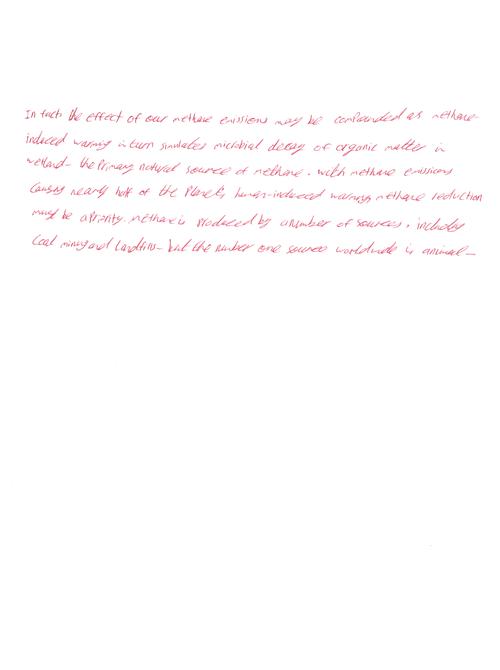 In fact, the effect of our methane emissions may be compounded as methane-
induced warming in turn simulates microbial decay of organic matter in
wetland- the Primary natural source of methane. with methane emissions
Causing nearly half of the Planet's human-induced warming methane reduction
must be a Priority. methane is Produced by a number of sources, includes
Coal mining and landfills- but the number one source worldwide is animal-